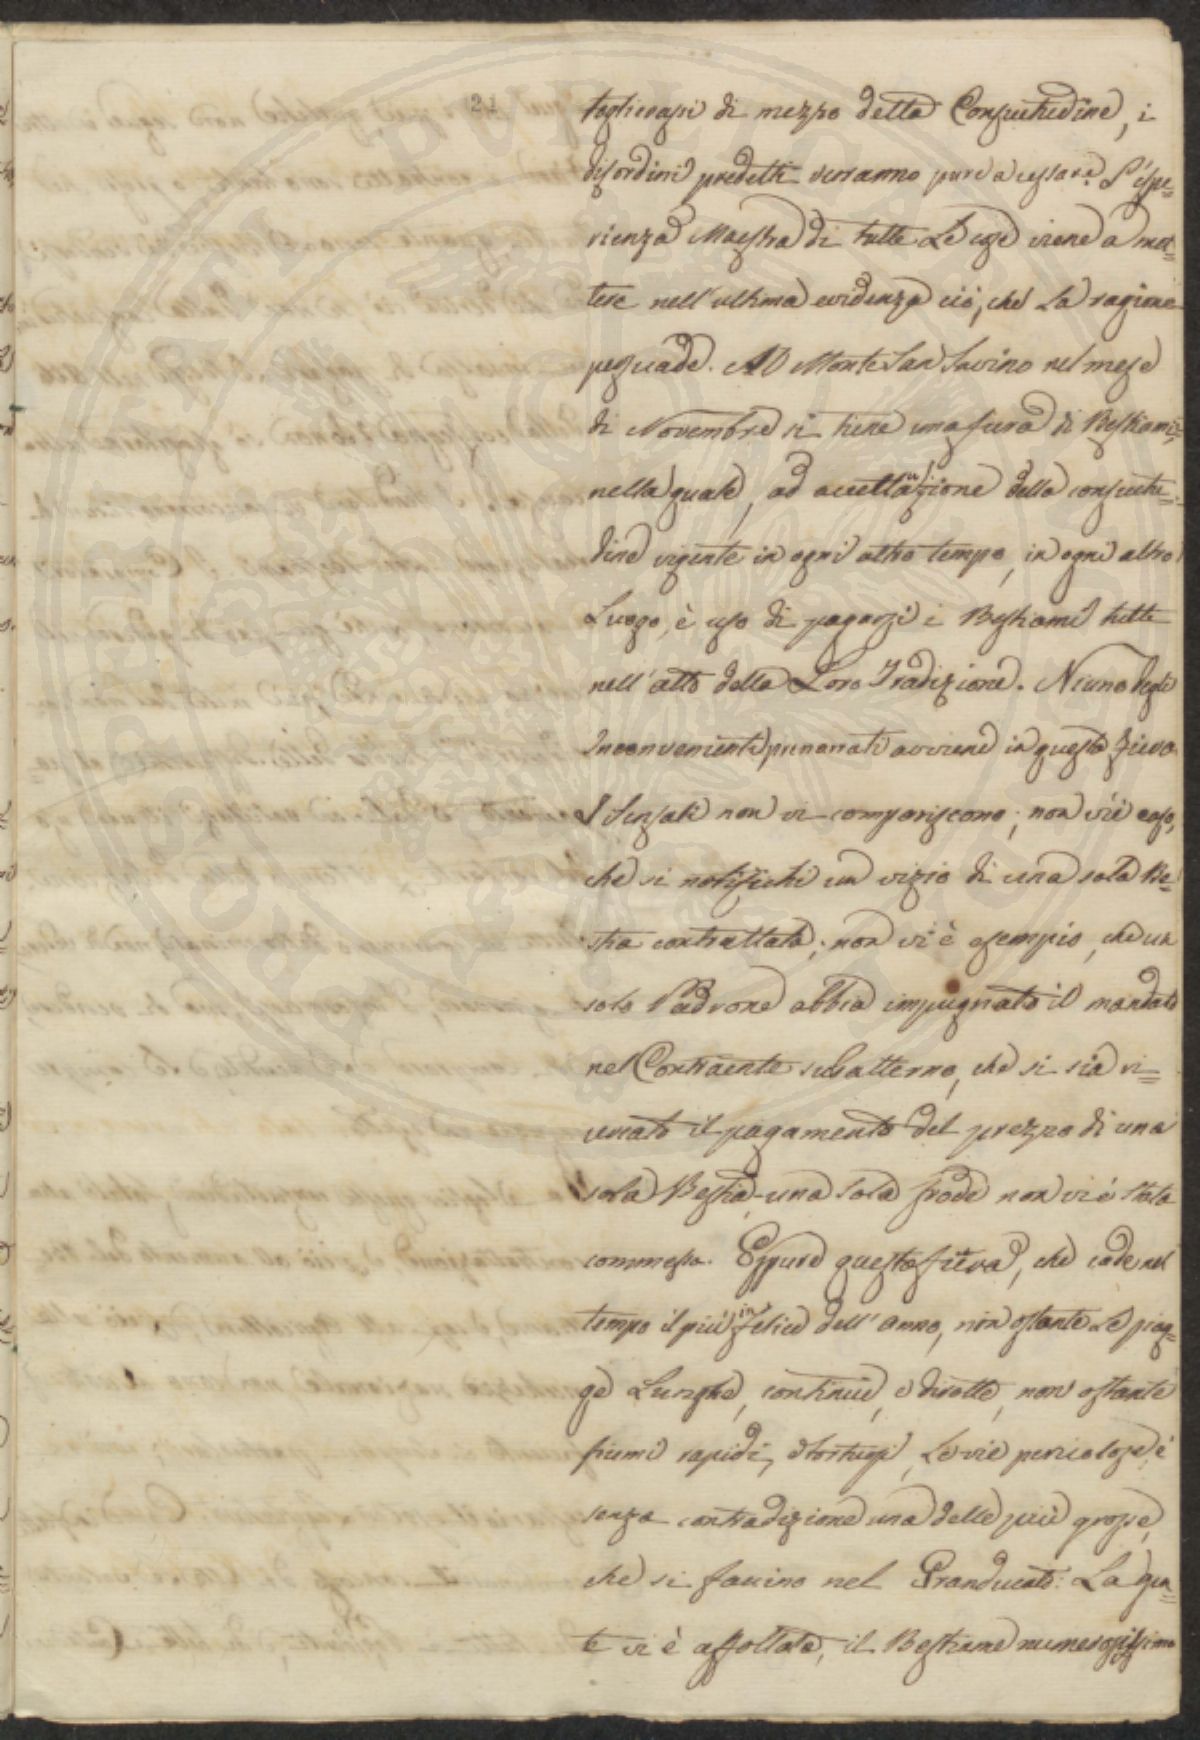 21
togliersi di mezzo detta Consuetudine, i
disordini predetti verranno pure a cessare. L'espe=
rienza Maestra di tutte Le cose viene a met=
tere nell'ultima evidenza ciò, che La ragione
persuade. Al Monte San Savino nel mese
di Novembre si tiene una fiera di Bestiami,
nella quale, ad accettuazione della consuetu=
dine vigente in ogni altro tempo, in ogni altro
Luogo, è uso di pagarsi i Bestiami tutti
nell'atto della Loro Tradizione. Niuno degli
Inconvenienti prenonati avviene in questa Fiera
I Sensali non vi compariscono; non v'è caso,
che si notifichi un vizio di una sola Be=
stia contrattata; non vi è esempio, che un
solo Padrone abbia impugnato il mandato
nel Contraente subalterno, che si sia ri=
cusato il pagamento del prezzo di una
sola Bestia, una sola frode non vi è stata
commessa. Eppure questa fiera, che cade nel
tempo il più infelice dell'anno, non ostante Le piog=
ge Lunghe, continue, e dirotte, non ostante
fiumi rapidi, e tortuosi, Le vie pericolose, è
senza contradizione una delle più grosse,
che si faccino nel Granducato: La gen=
te vi è affollata, il Bestiame numerosissimo